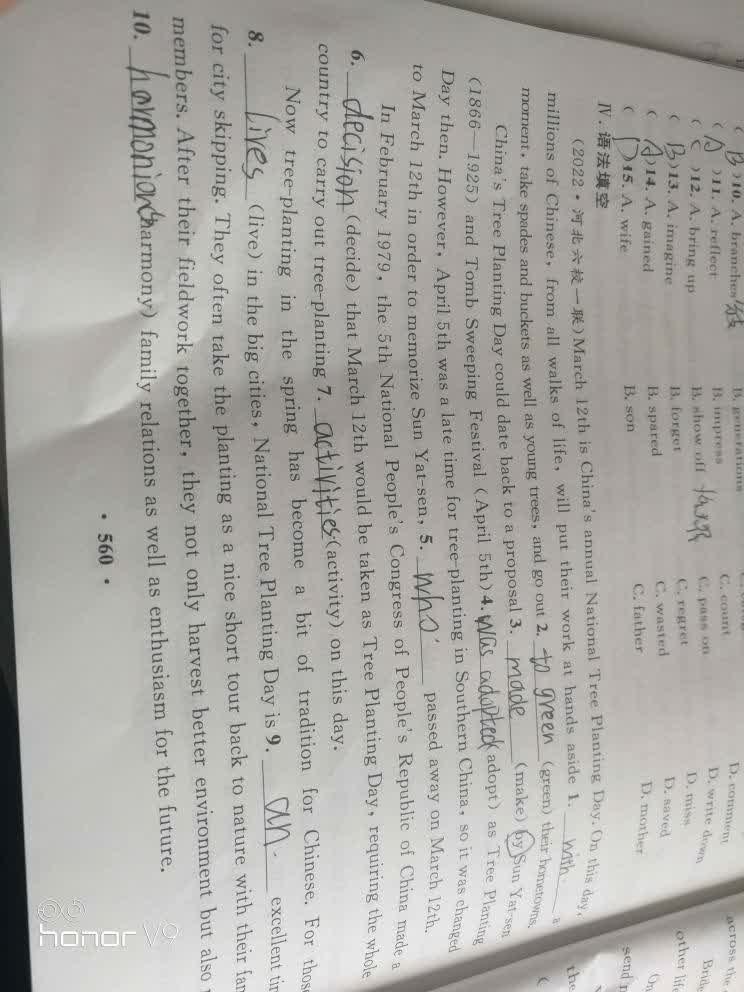 ( B )10. A. branches 枝 B. generations
( A )11. A. reflect B. impress C. count D. comment
( C )12. A. bring up B. show off C. pass on D. write down
( B )13. A. imagine B. forget C. regret D. miss
( A )14. A. gained B. spared C. wasted D. saved
( D )15. A. wife B. son C. father D. mother
Ⅳ. 语法填空
(2022·河北六校一联)March 12th is China's annual National Tree Planting Day. On this day,
millions of Chinese, from all walks of life, will put their work at hands aside 1. with a
moment, take spades and buckets as well as young trees, and go out 2. to green (green) their hometowns.
China's Tree Planting Day could date back to a proposal 3. made (make) by Sun Yat-sen
(1866—1925) and Tomb Sweeping Festival (April 5th) 4. was adopted (adopt) as Tree Planting
Day then. However, April 5th was a late time for tree-planting in Southern China, so it was changed
to March 12th in order to memorize Sun Yat-sen, 5. who passed away on March 12th.
In February 1979, the 5th National People's Congress of People's Republic of China made a
6. decision (decide) that March 12th would be taken as Tree Planting Day, requiring the whole
country to carry out tree-planting 7. activities (activity) on this day.
Now tree-planting in the spring has become a bit of tradition for Chinese. For those
8. lives (live) in the big cities, National Tree Planting Day is 9. an excellent
for city skipping. They often take the planting as a nice short tour back to nature with their
members. After their fieldwork together, they not only harvest better environment but also
10. harmonian (harmony) family relations as well as enthusiasm for the future.
· 560 ·
across the
Bride
other life
On
send
the
honor V9